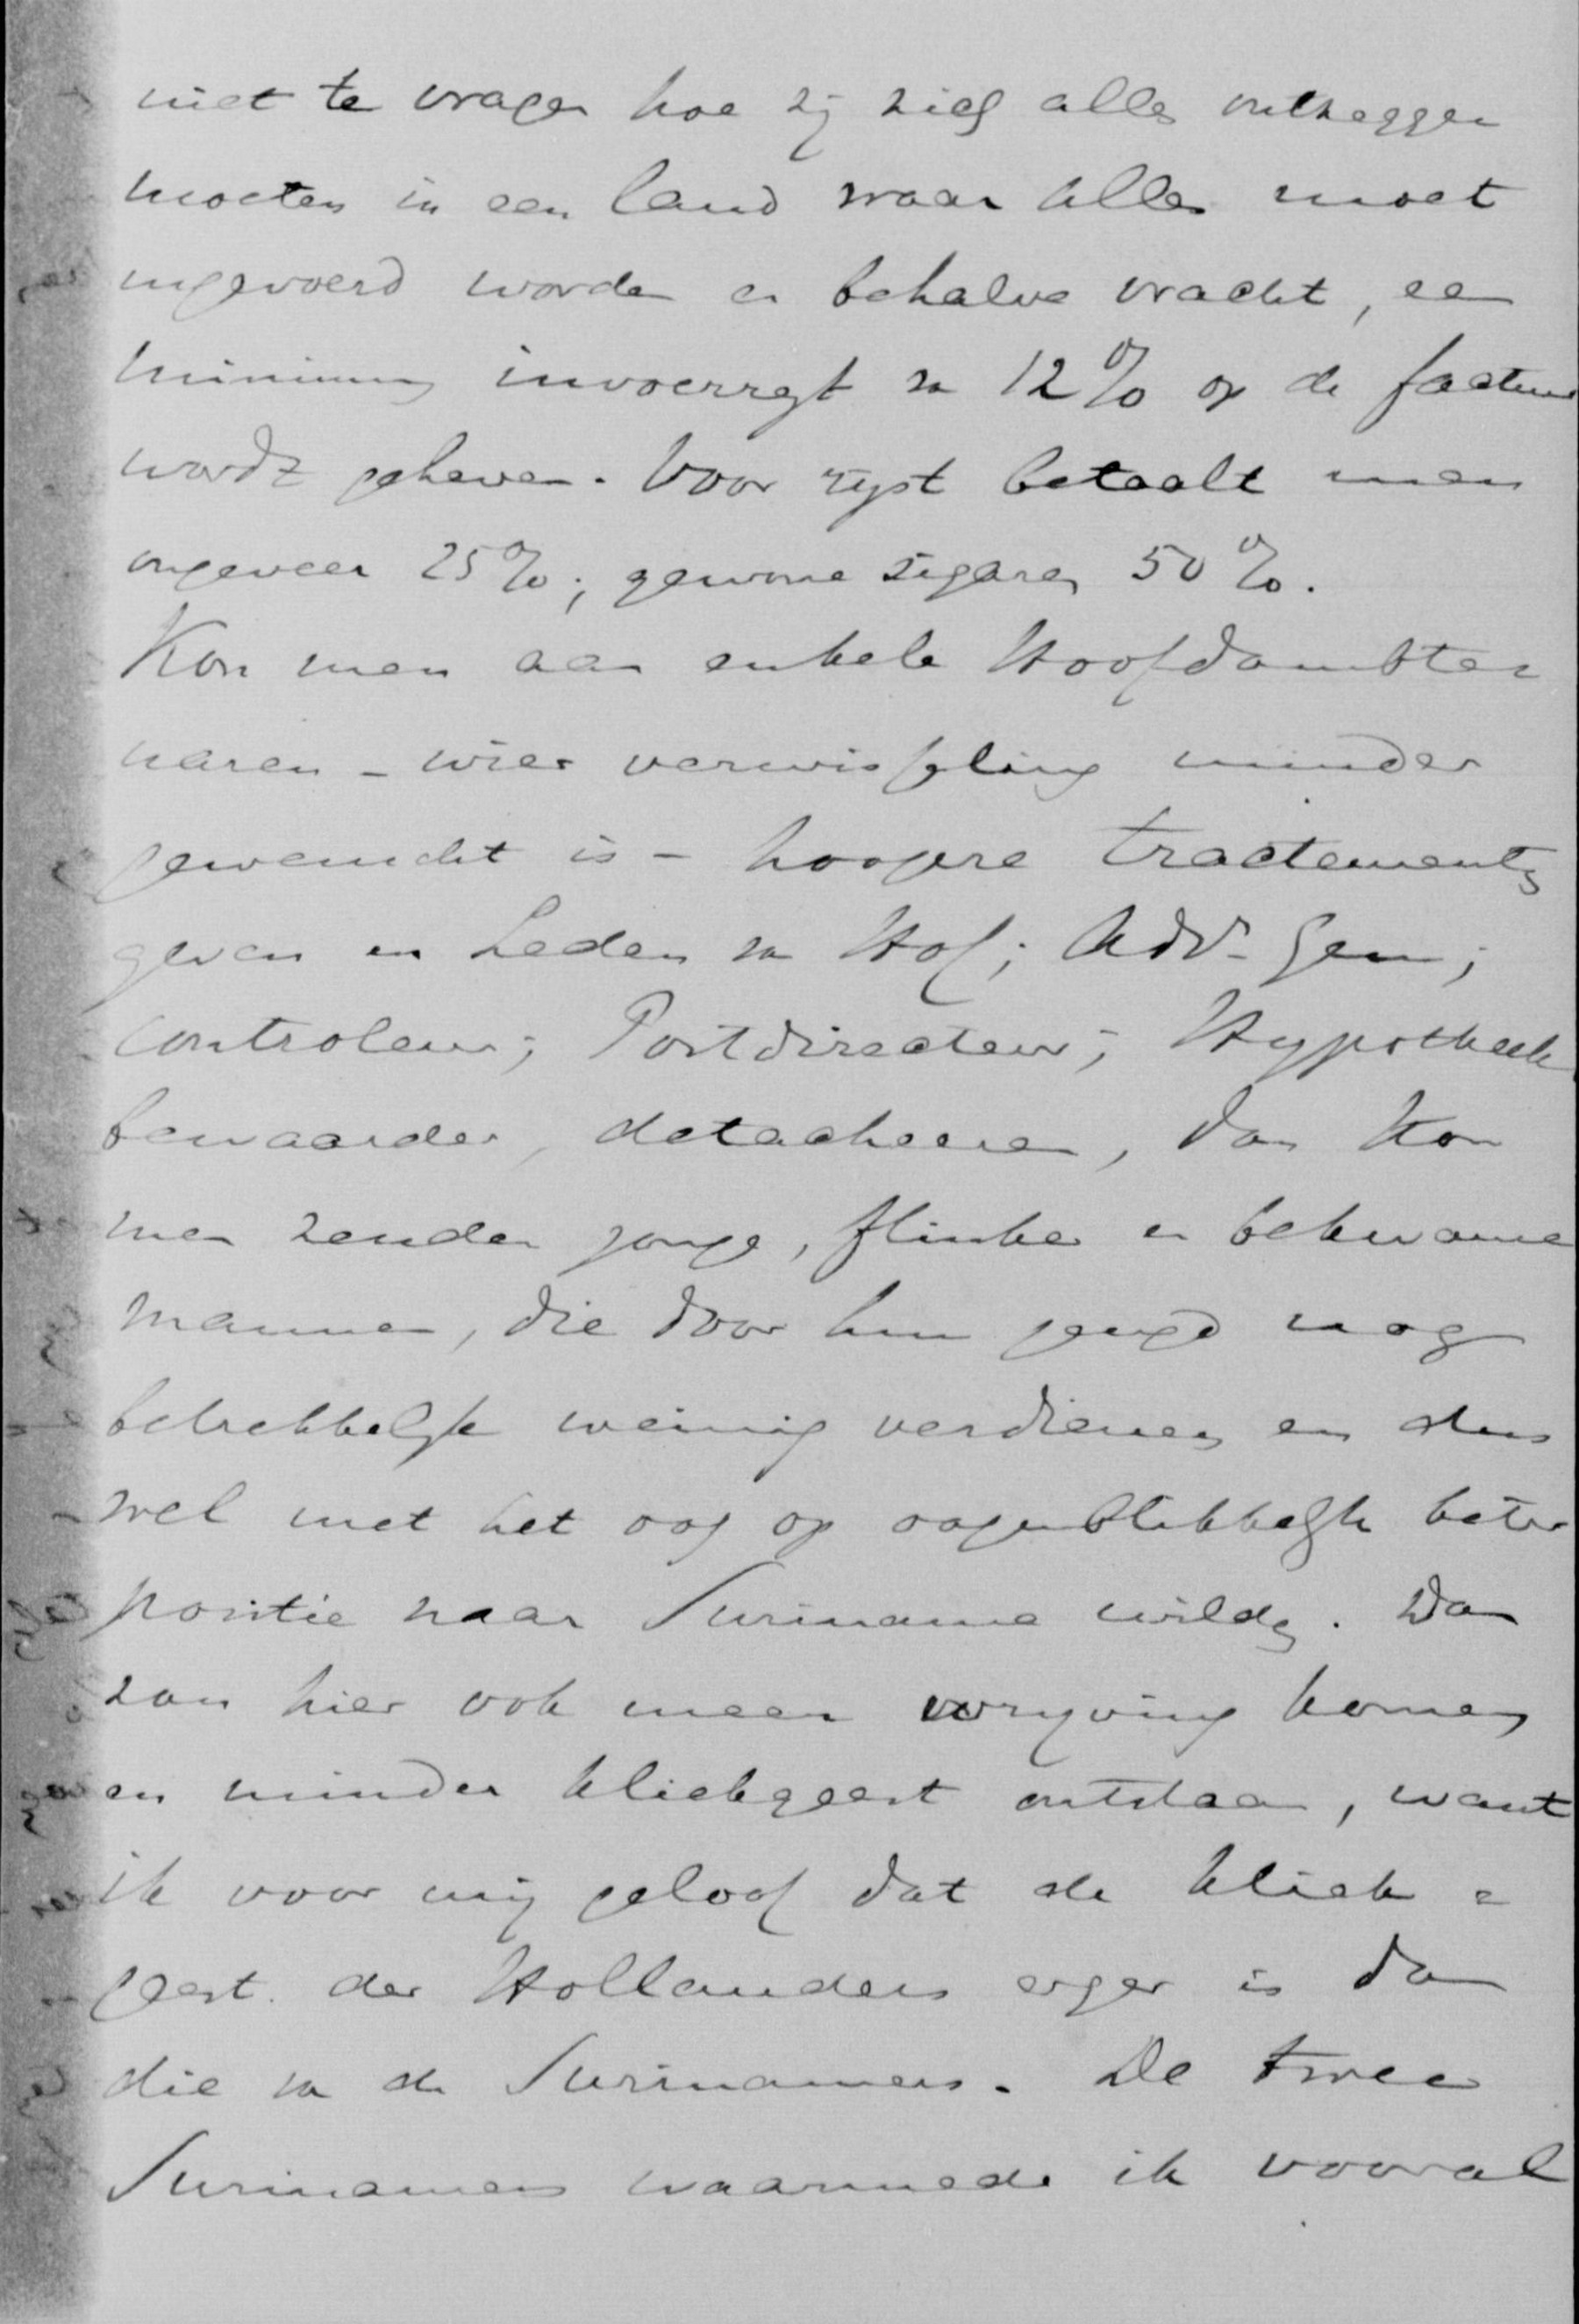 niet te vragen hoe zij zich alles ontzeggen
moeten in een land waar alles moet
ingevoerd worden en behalve vracht, een
minimum invoerregt van 12% op de factuur
wordt geheven. Voor rijst betaalt men
ongeveer 25%; gewone sigaren 50%.
Kon men aan enkele Hoofdambte
naren - wier verwisseling minder
gewenscht is - hoogere tractementen
geven en Leden van Hof; Adv. Gen;
Controleur; Postdirecteur; Hypotheek
bewaarder, detacheeren, dan kon
men zenden jonge, flinke en bekwame
mannen, die door hun jeugd nog
betrekkelijk weinig verdienen en dus
wel met het oog op oogenblikkelijk beter
positie naar Suriname wilden. Dan
zou hier ook meer wrijving komen
en minder kliekgeest ontstaan, want
ik voor mij geloof dat de kliek
geest der Hollanders erger is dan
die van de Surinamers. De twee
Surinamers waarmede ik vooral